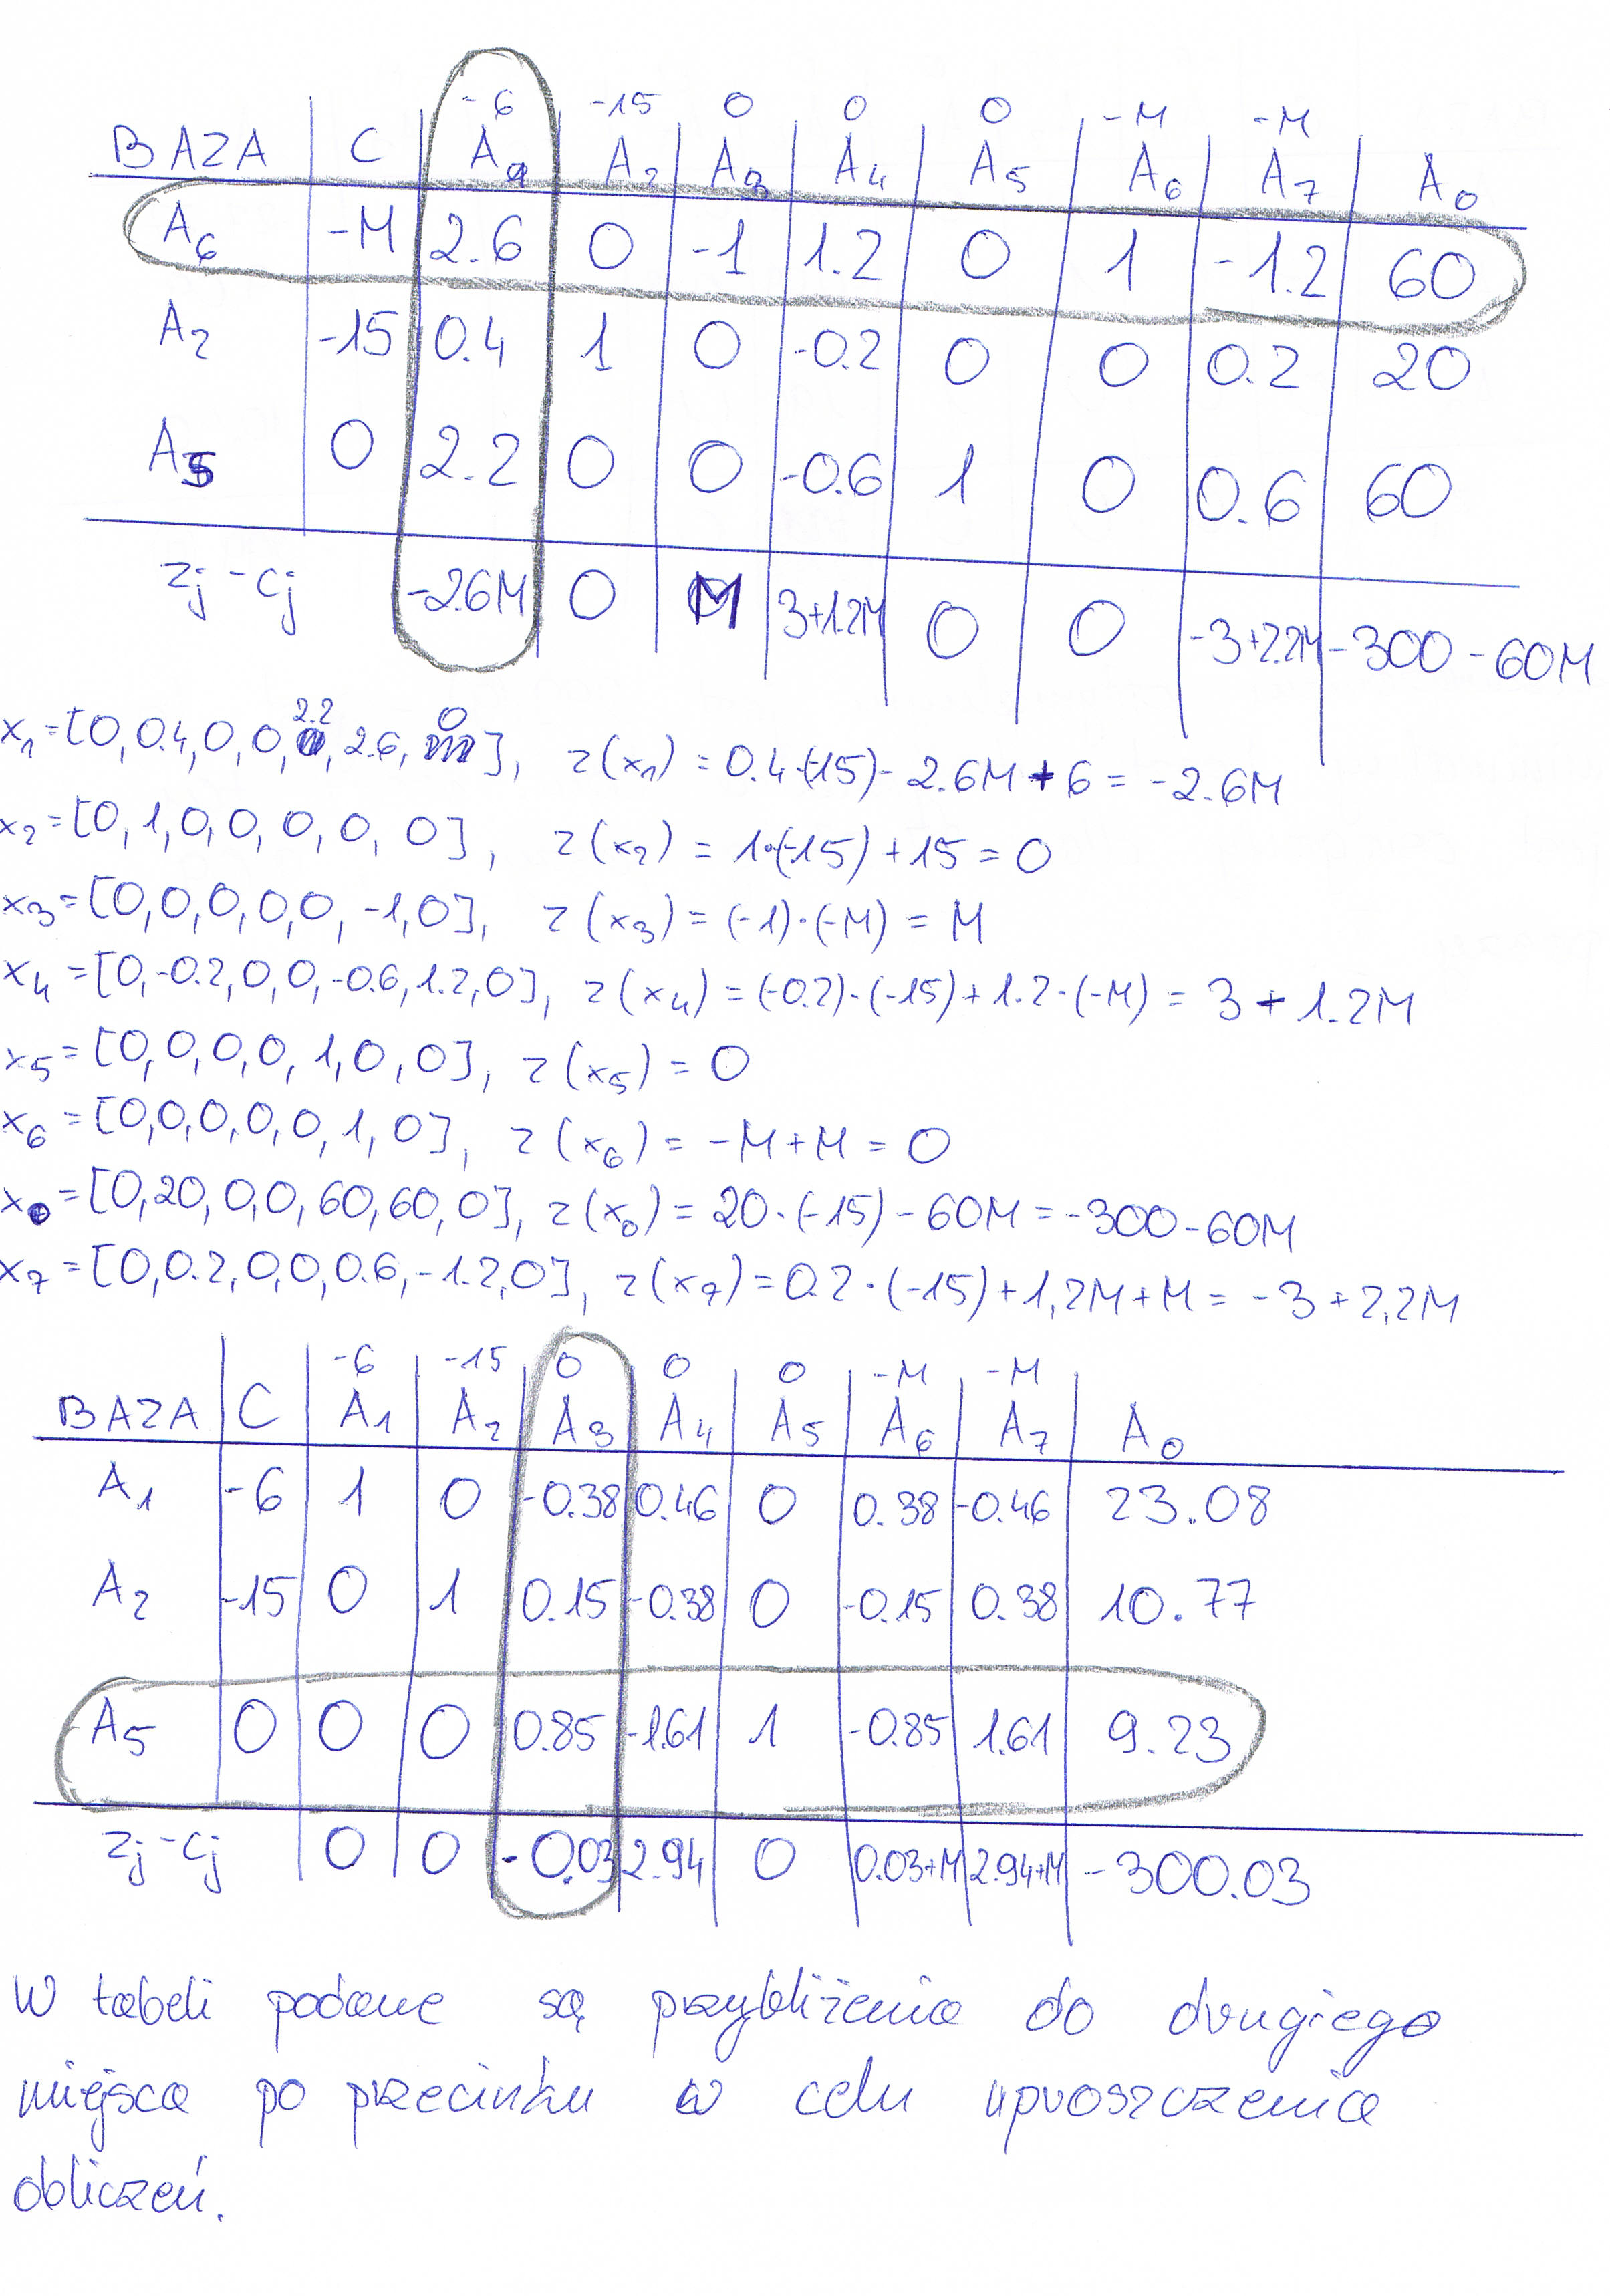 -6 -15 0 0 0 -M -M
BAZA C A1 A2 A3 A4 A5 A6 A7 A0
A6 -M 2.6 0 -1 1.2 0 1 -1.2 60
A2 -15 0.4 1 0 -0.2 0 0 0.2 20
A5 0 2.2 0 0 -0.6 1 0 0.6 60
zj-cj -2.6M 0 M 3+1.2M 0 0 -3+2.2M -300-60M
x1=[0, 0.4, 0, 0, 2.2, 2.6, 0], z(x1) = 0.4·(-15) - 2.6M + 6 = -2.6M
x2=[0, 1, 0, 0, 0, 0, 0], z(x2) = 1·(-15) + 15 = 0
x3=[0, 0, 0, 0, 0, -1, 0], z(x3) = (-1)·(-M) = M
x4=[0, -0.2, 0, 0, -0.6, 1.2, 0], z(x4) = (-0.2)·(-15) + 1.2·(-M) = 3 + 1.2M
x5=[0, 0, 0, 0, 1, 0, 0], z(x5) = 0
x6=[0, 0, 0, 0, 0, 1, 0], z(x6) = -M + M = 0
x0=[0, 20, 0, 0, 60, 60, 0], z(x0) = 20·(-15) - 60M = -300 - 60M
x7=[0, 0.2, 0, 0, 0.6, -1.2, 0], z(x7) = 0.2·(-15) + 1,2M + M = -3 + 2,2M
-6 -15 0 0 0 -M -M
BAZA C A1 A2 A3 A4 A5 A6 A7 A0
A1 -6 1 0 -0.38 0.46 0 0.38 -0.46 23.08
A2 -15 0 1 0.15 -0.38 0 -0.15 0.38 10.77
A5 0 0 0 0.85 -1.61 1 -0.85 1.61 9.23
zj-cj 0 0 -0.03 2.94 0 0.03+M 2.94+M -300.03
W tabeli podane są przybliżenia do drugiego
miejsca po przecinku w celu uproszczenia
obliczeń.